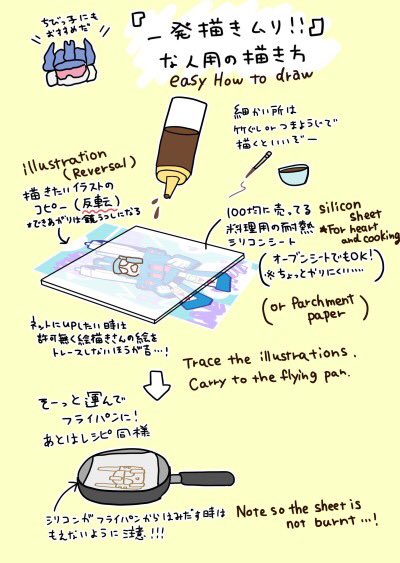 ちびっ子にも
おすすめだ
『一発描きムリ!!』
な人用の描き方
easy How to draw
細かい所は
竹ぐしorつまようじで
描くといいぞー
illustration
(Reversal)
描きたいイラストの
コピー(反転)
※できあがりは鏡うつしになる
100均に売ってる
料理用の耐熱
シリコンシート
silicon
sheet
*For heart
and cooking
(オーブンシートでもOK!
※ちょっとかりにくい……)
(or Parchment
paper)
ネットにupしたい時は
許可無く絵描きさんの絵を
トレースしないほうが吉…!
Trace the illustrations.
Carry to the flying pan.
そーっと運んで
フライパンに!
あとはレシピ同様
シリコンがフライパンからはみだす時は
もえないように注意!!!
Note so the sheet is
not burnt …!